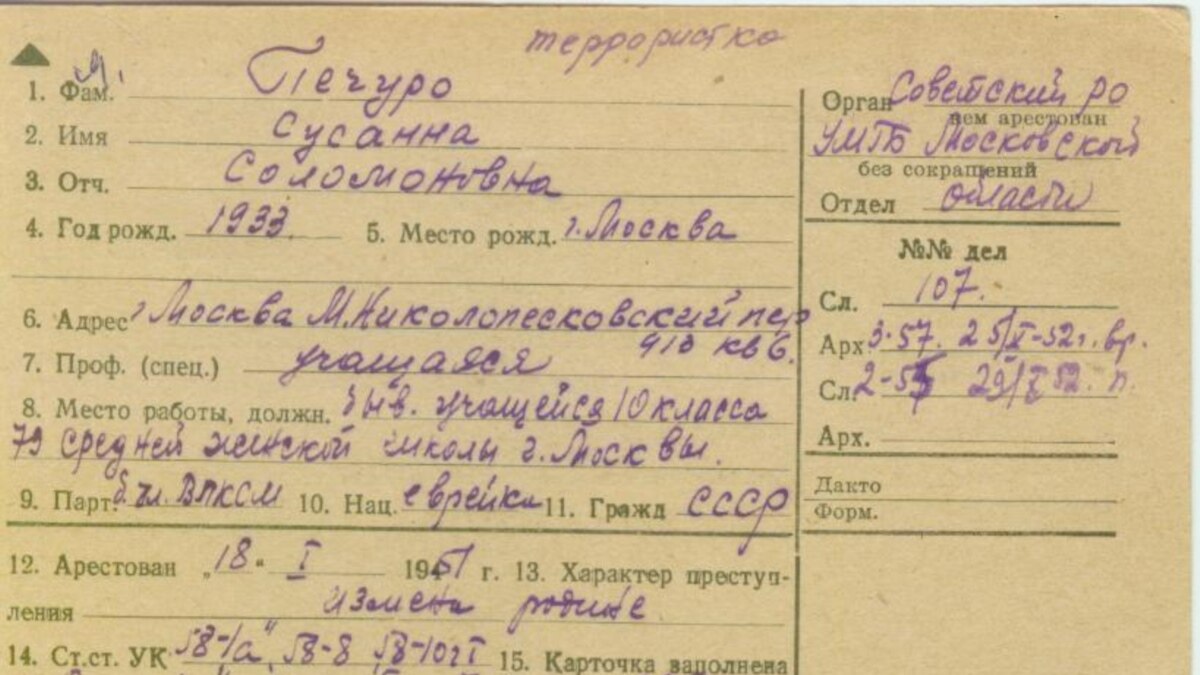 террористка
1. Фам. Печуро
2. Имя Сусанна
3. Отч. Соломоновна
4. Год рожд. 1933 5. Место рожд. г. Москва
6. Адрес г Москва М.Николопесковский пер
кв 6.
7. Проф. (спец.) учащаяся
8. Место работы, должн. учащейся 10 класса
79 средней женской школы г. Москвы.
9. Парт. б. чл. ВЛКСМ 10. Нац. еврейка 11. Гражд СССР
12. Арестован "18" I 1951 г. 13. Характер преступ-
ления измена родине
14. Ст.ст. УК 58-1а", 58-8 58-10 ч I 15. Карточка заполнена
Орган Советский РО
кем арестован
УМГБ Московской
без сокращений
Отдел области
№№ дел
Сл. 107.
Арх. 3-57. 2 5/XI-52г. вр.
Сл. 2-55 52. п.
Арх.
Дакто
Форм.